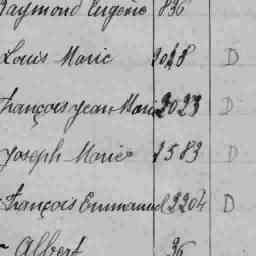 Raymond Eugène 836
Louis Marie 2048 D
François Jean Marie 2023 D
Joseph Marie 2583 D
François Emmanuel 2204 D
Albert 96